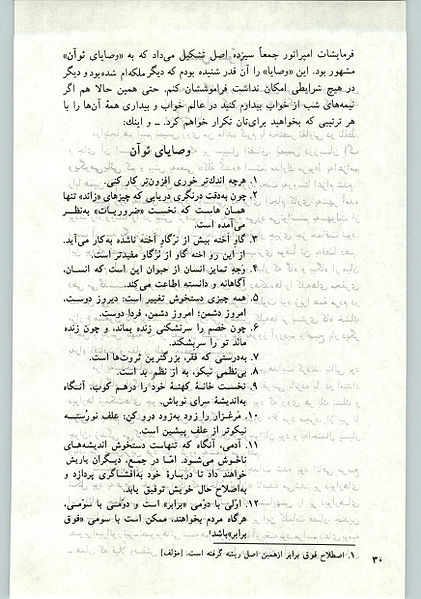 فرمایشات امپراتور جمعاً سیزده اصل تشکیل می‌داد که به «وصایای ئوآن»
مشهور بود. این «وصایا» را آن قدر شنیده بودم که دیگر ملکه‌ام شده بود و دیگر
در هیچ شرایطی امکان نداشت فراموششان کنم. حتی همین حالا هم اگر
نیمه‌های شب از خواب بیدارم کنید در عالم خواب و بیداری همهٔ آن‌ها را با
هر ترتیبی که بخواهید برای‌تان تکرار خواهم کرد. ـ و اینك:
وصایای ئوآن
۱. هرچه اندك‌تر خوری افزون‌تر کار کنی.
۲. چون به‌دقت درنگری دریابی که چیزهای «زائد» تنها
همان هاست که نخست «ضروریات» به‌نظر
می‌آمده است.
۳. گاو اخته بیش از نرگاو اخته ناشده به‌کار می‌آید.
از این رو اخته گاو از نرگاو مفیدتر است.
۴. وجه تمایز انسان از حیوان این است که انسان،
آگاهانه و دانسته اطاعت می‌کند.
۵. همه چیزی دستخوش تغییر است: دیروز دوست،
امروز دشمن؛ امروز دشمن، فردا دوست.
۶. چون خصم را سرنشکنی زنده بماند، و چون زنده
ماند تو را سربشکند.
۷. به‌درستی که فقر، بزرگترین ثروت‌ها است.
۸. بی‌نظمی نیکو، به از نظم بد است.
۹. نخست خانهٔ کهنهٔ خود را درهم کوب، آنگاه
به‌اندیشهٔ سرای نوباش.
۱۰. مرغزار را زود به‌زود درو کن: علف نورسته
نیکوتر از علف پیشین است.
۱۱. آدمی، آنگاه که تنهاست دستخوش اندیشه‌های
ناخوش می‌شود. امّا در جمع، دیگران یاریش
خواهند داد تا دربارهٔ خود به‌افشاگری پردازد و
به‌اصلاح حال خویش توفیق یابد.
۱۲. اوّلی با دومی «برابر» است و دوّمی با سوّمی،
هرگاه مردم بخواهند، ممکن است با سومی «فوق
برابر» باشد۱
۱. اصطلاح فوق برابر ازهمین اصل ریشه گرفته است. [مؤلف]
۳۰